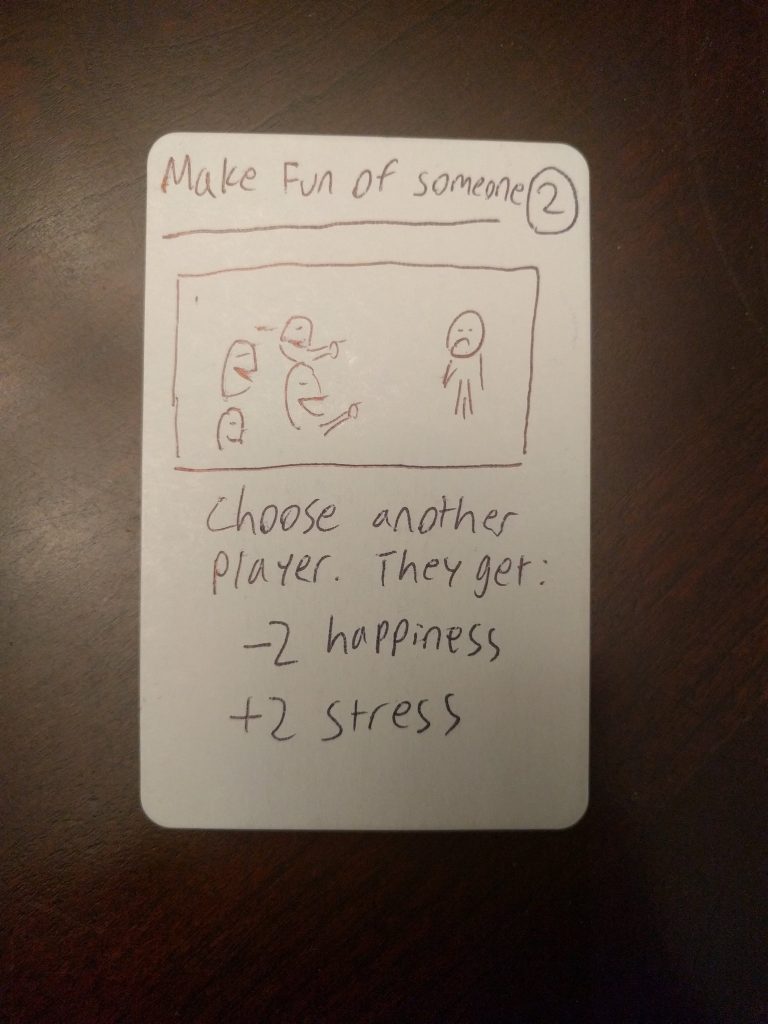 Make Fun of someone 2
Choose another
player. They get:
-2 happiness
+2 stress